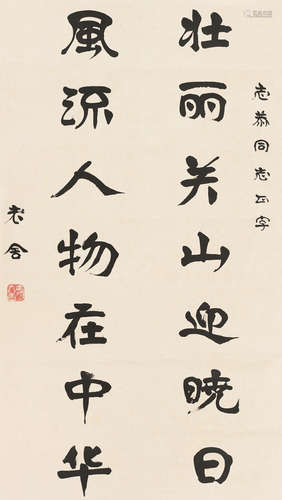 志恭同志正字
壮丽关山迎晓日
風流人物在中华
老舍